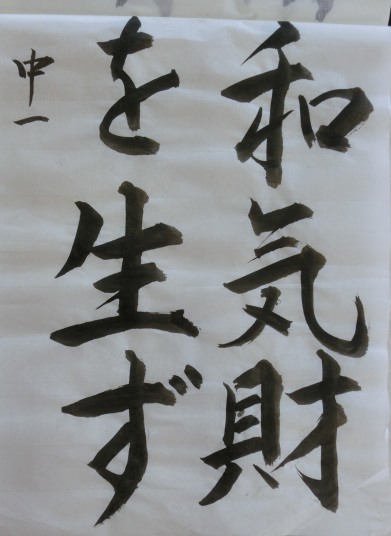 和気財
を生ず
中一